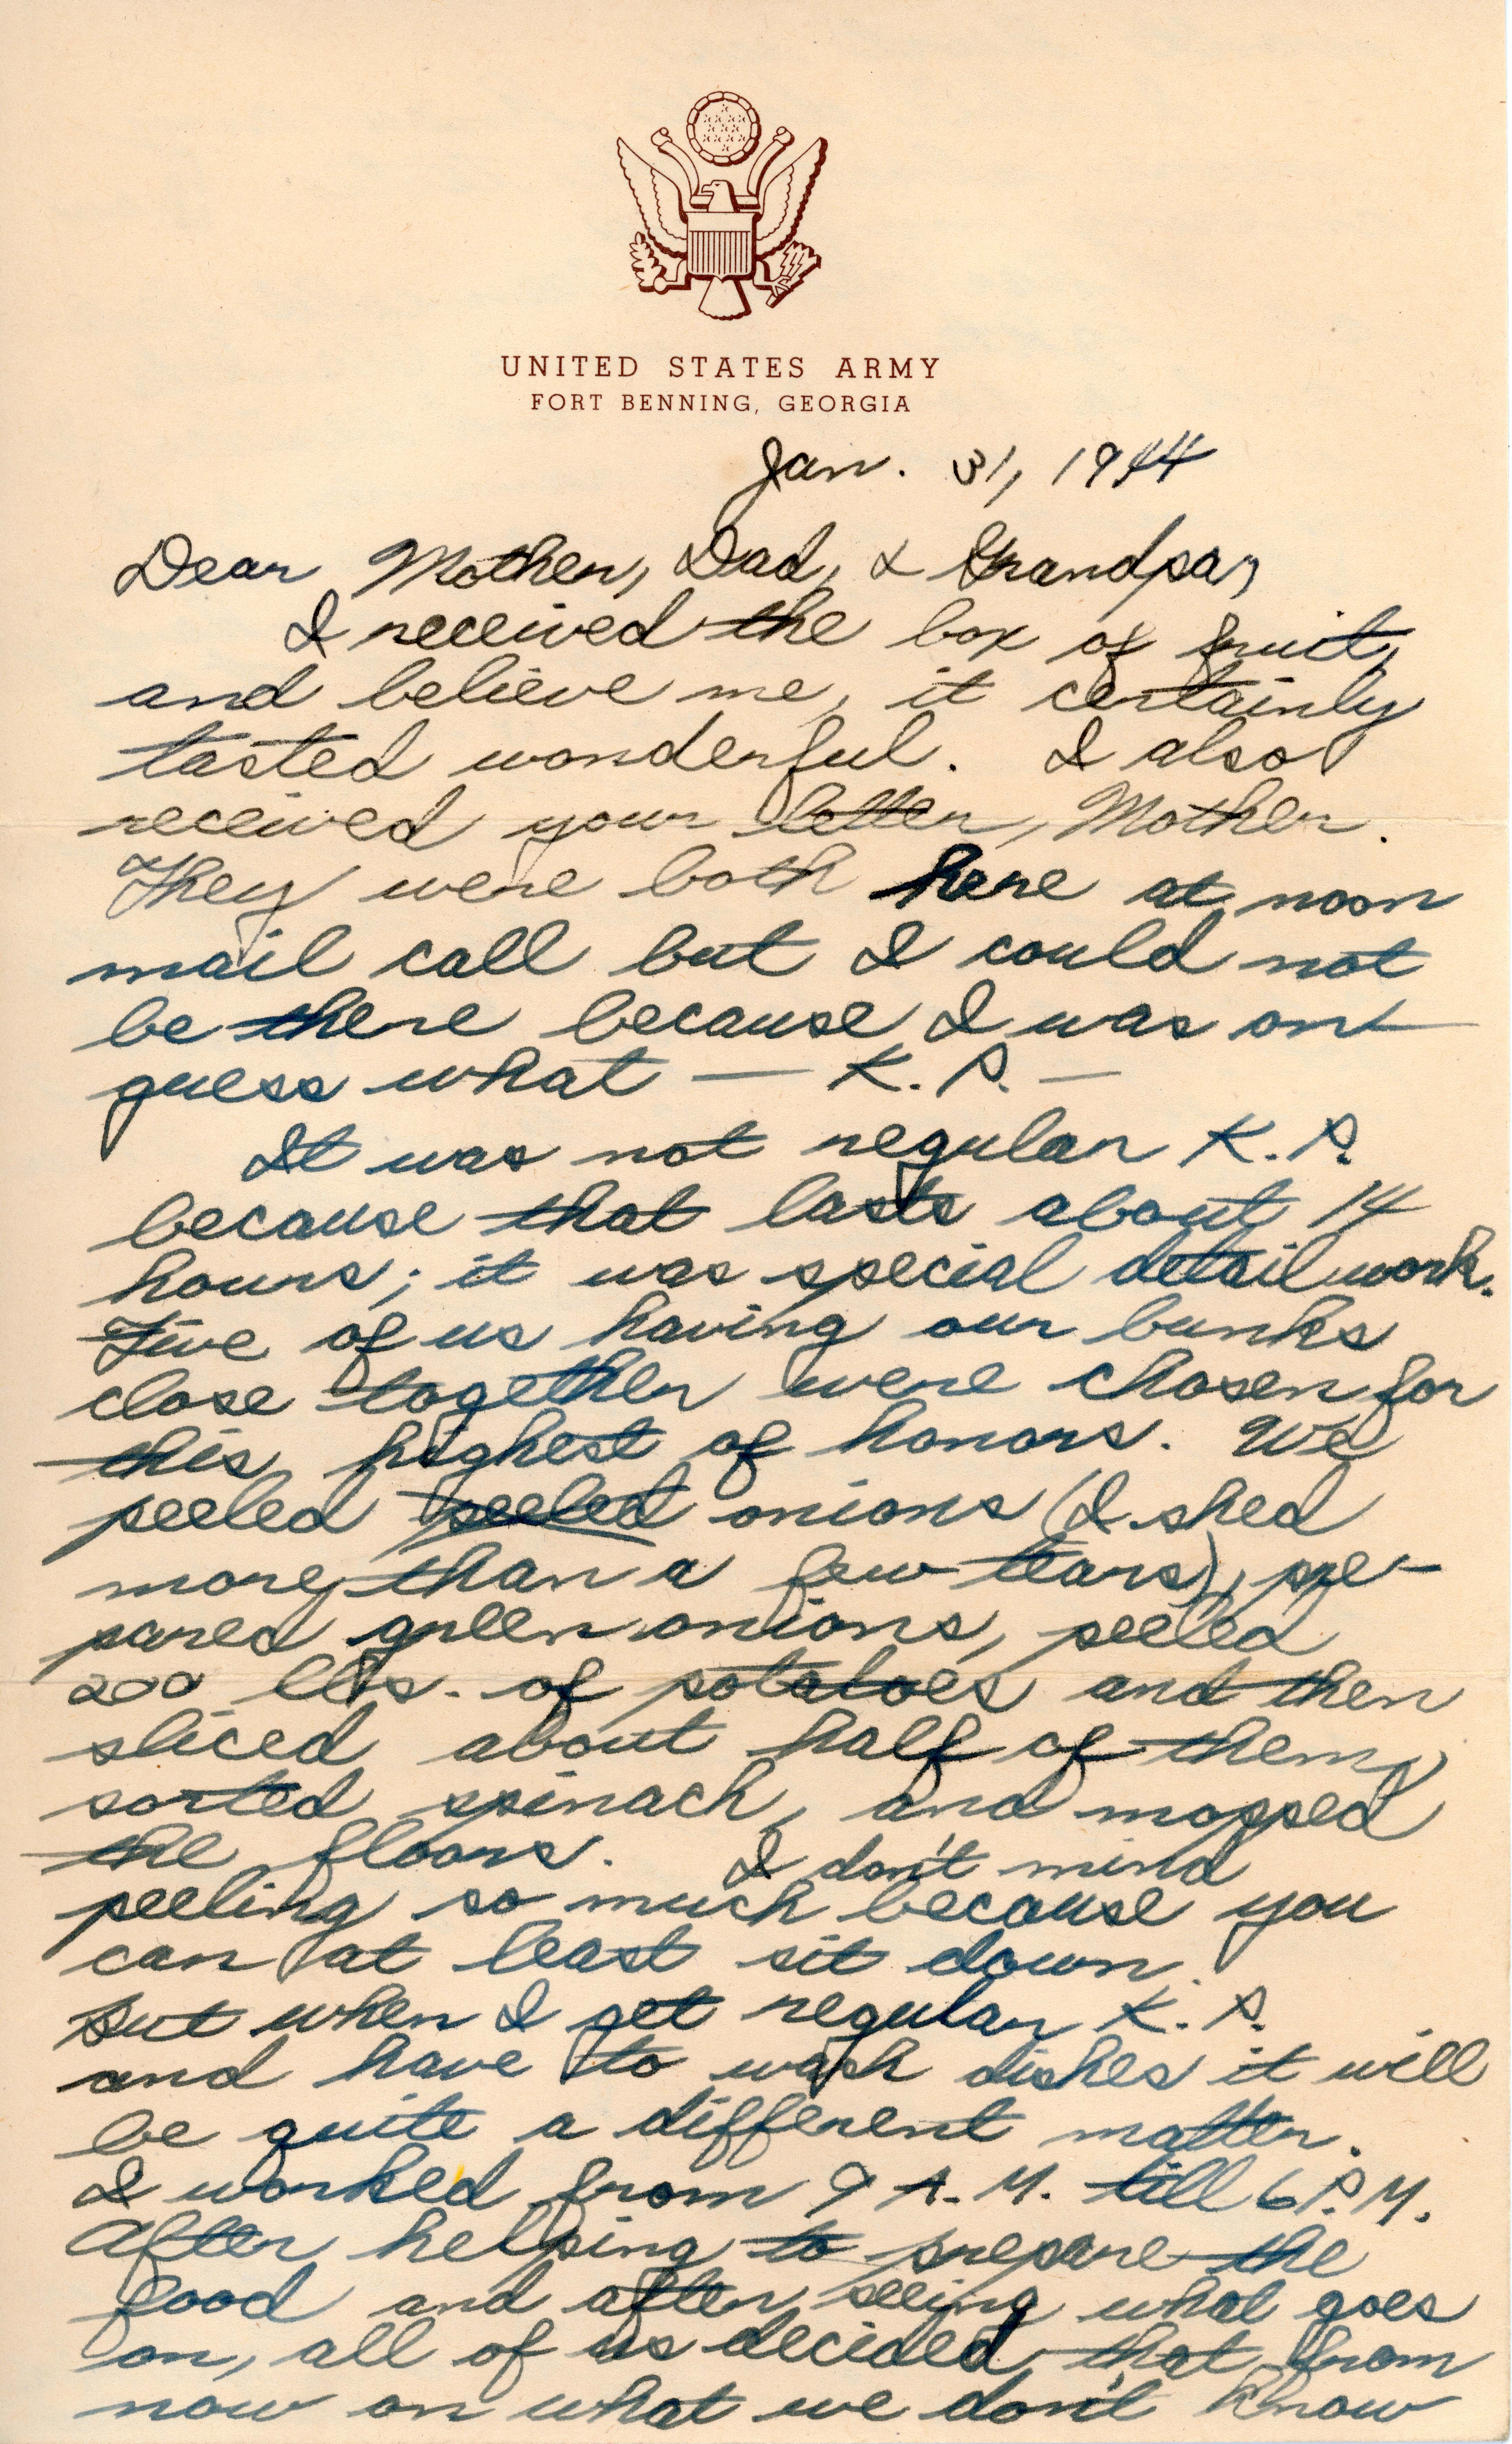 UNITED STATES ARMY
FORT BENNING, GEORGIA
Jan. 31, 1944
Dear Mother, Dad, & Grandpa,
I received the box of fruit,
and believe me, it certainly
tasted wonderful. I also
received your letter, Mother.
They were both here at noon
mail call but I could not
be there because I was on
guess what — K. P. —
It was not regular K. P.
because that lasts about 14
hours; it was special detail work.
Five of us having our bunks
close together were chosen for
this highest of honors. We
peeled peeled onions (I shed
more than a few tears), pre-
pared green onions, peeled
200 lbs. of potatoes and then
sliced about half of them,
sorted spinach, and mopped
the floors. I don't mind
peeling so much because you
can at least sit down.
But when I get regular K. P.
and have to wash dishes it will
be quite a different matter.
I worked from 9 A. M. till 6 P. M.
After helping to prepare the
food and after seeing what goes
on, all of us decided that from
now on what we don't know